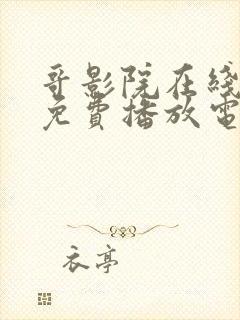 哥影院在线
免費播放電
衣亭